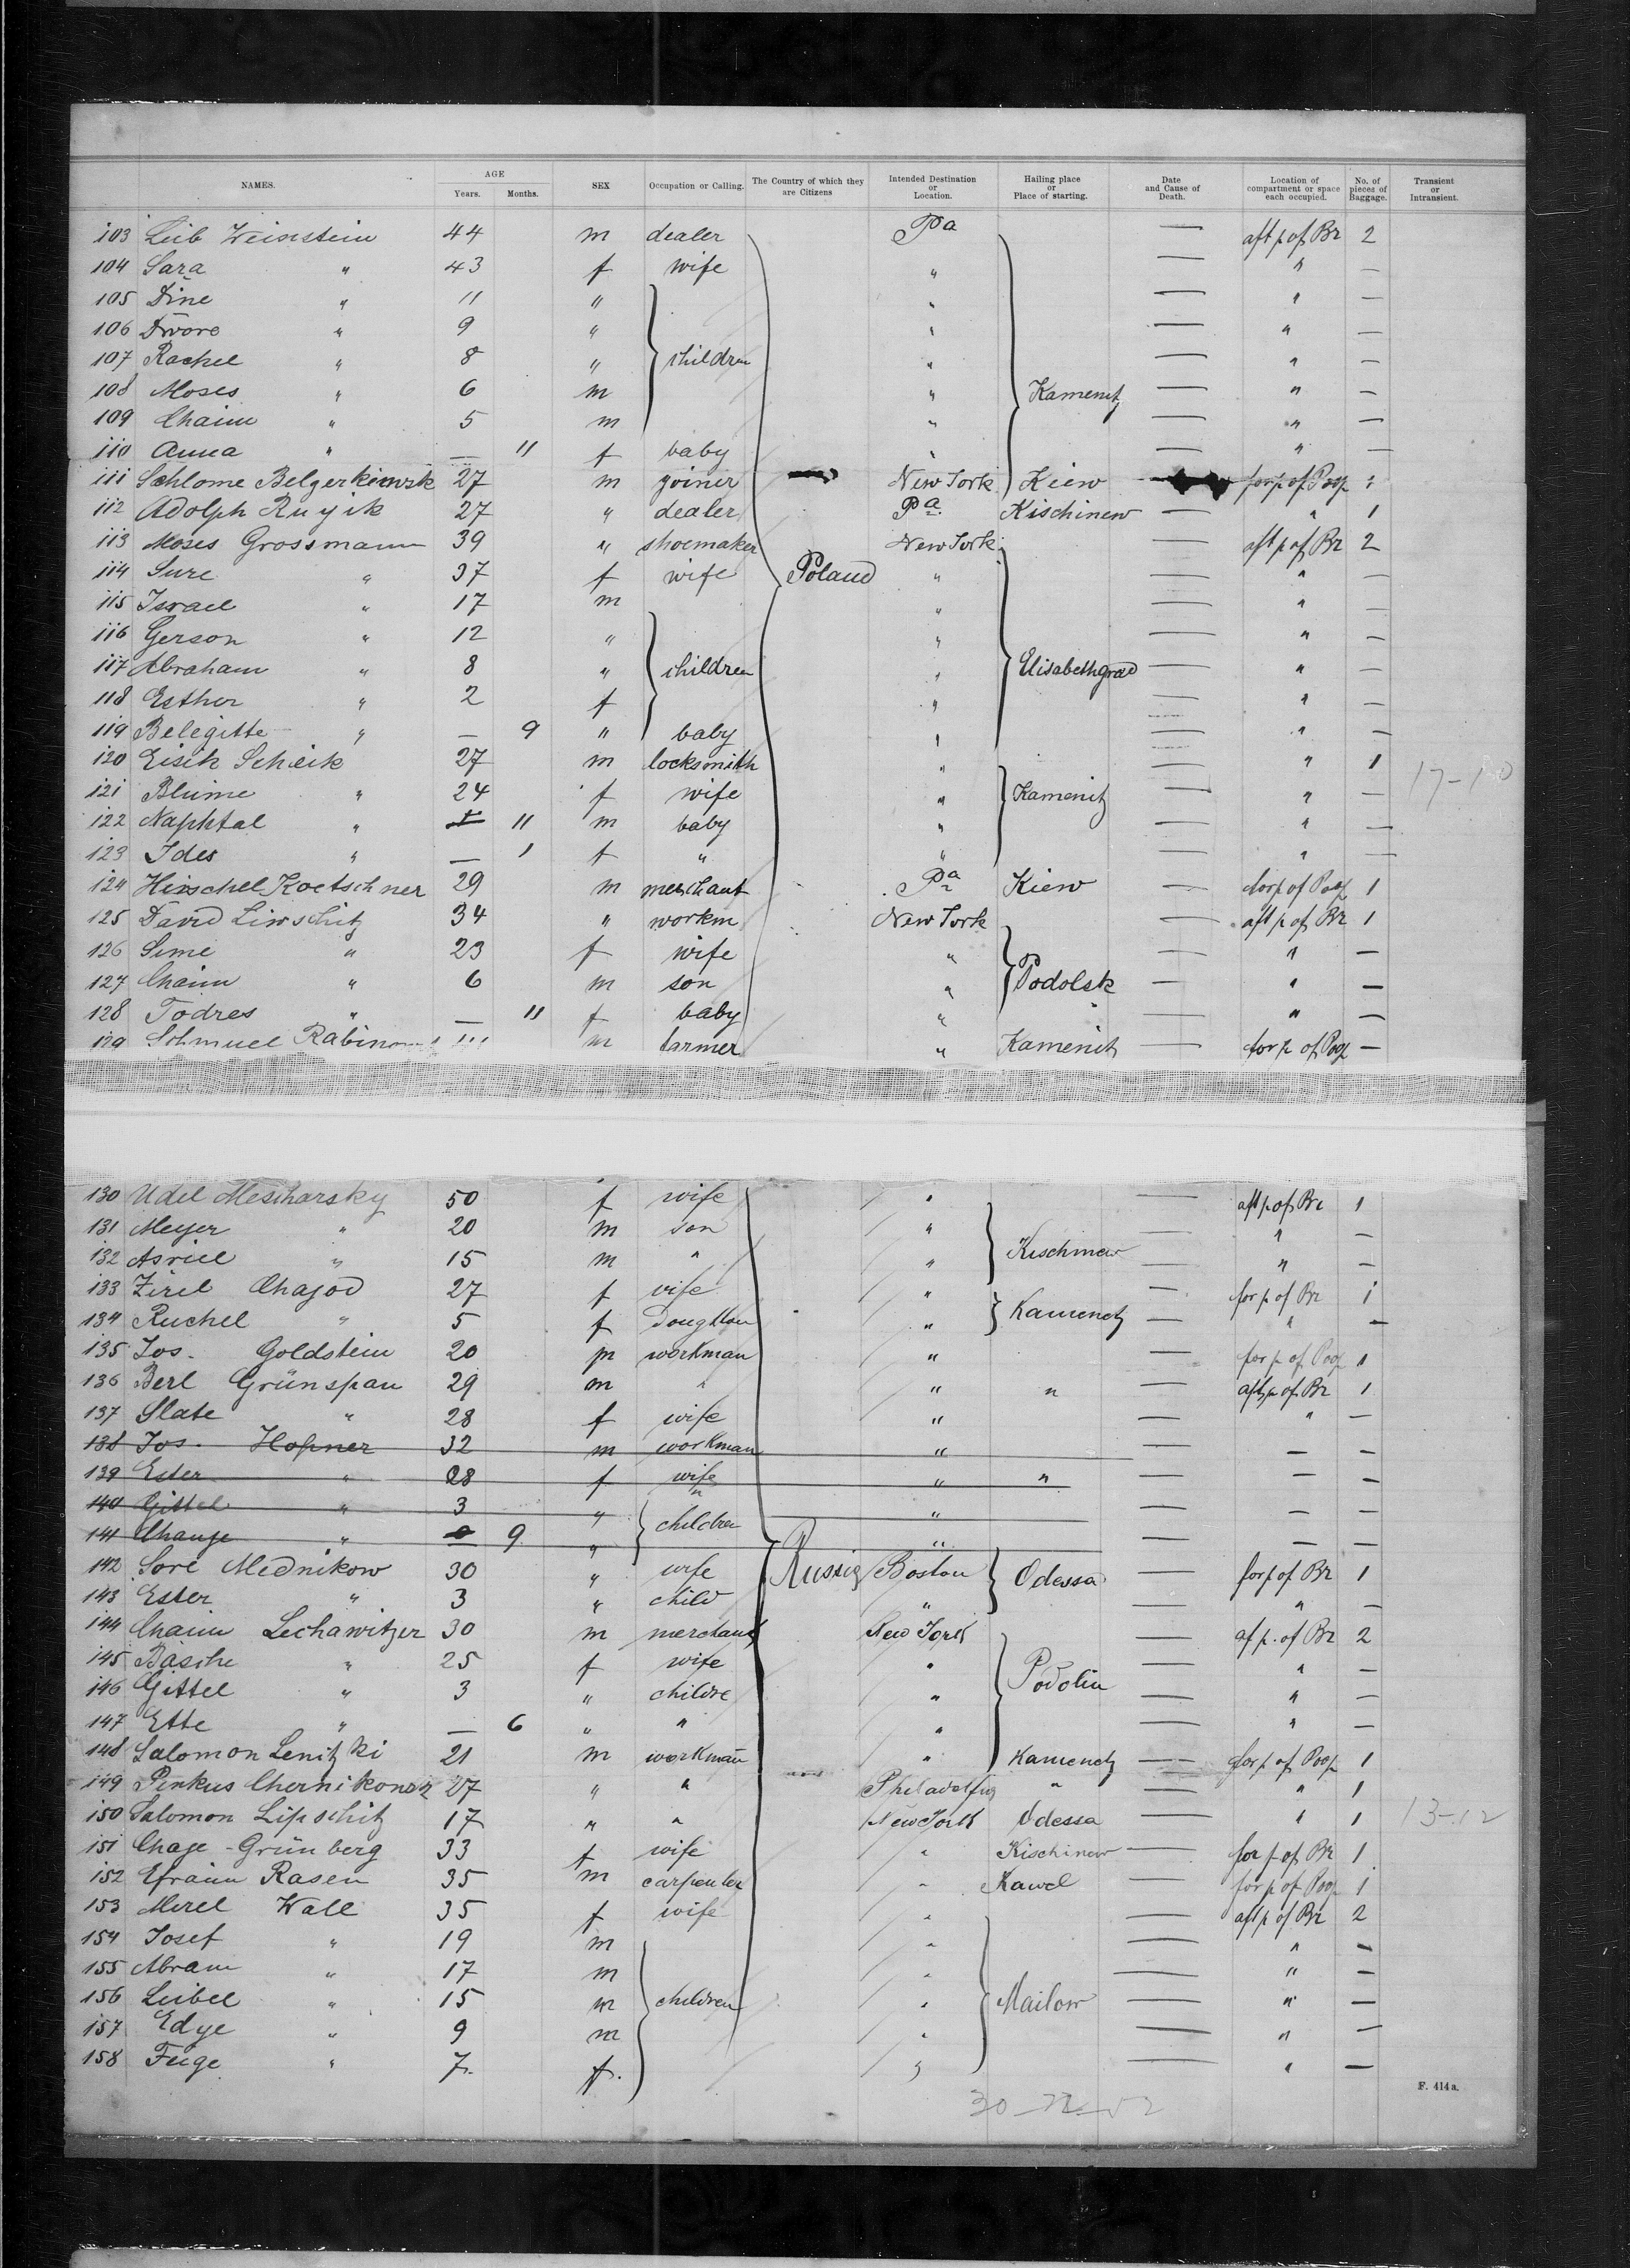 NAMES. AGE Years. Months. SEX Occupation or Calling. The Country of which they are Citizens Intended Destination or Location. Hailing place or Place of starting. Date and Cause of Death. Location of compartment or space each occupied. No. of pieces of Baggage. Transient or Intransient.
103 Leib Weinstein 44 m dealer Pa — aft p of Br 2
104 Sara " 43 f wife " — " —
105 Dine " 11 " " — " —
106 Dwore " 9 " " — " —
107 Rachel " 8 " children " — " —
108 Moses " 6 m " Kamenitz — " —
109 Chaim " 5 m " — " —
110 Anna " — 11 f baby " — " —
111 Schlome 27 m joiner New York Kiew for p of Poop
112 Adolph 27 " dealer Pa Kischinew — " 1
113 Moses Grossmann 39 " shoemaker New York — aft p of Br 2
114 Sure " 37 f wife Poland " — " —
115 Israel " 17 m " — " —
116 Gerson " 12 " " — " —
117 Abraham " 8 " children " Elisabethgrad — " —
118 Esther " 2 f " — " —
119 Belegitte " — 9 " baby " — " —
120 Eisik Scheik 27 m locksmith " — " 1 17-10
121 Blume " 24 f wife " Kamenitz — " —
122 Naphtal " 11 m baby " — " —
123 Ides " — 1 f " " — " —
124 Hirschel Koetschner 29 m merchant Pa Kiew — for p of Poop 1
125 David Liwschitz 34 " workm New York — aft p of Br 1
126 Sime " 23 f wife " — " —
127 Chaim " 6 m son " Podolsk — " —
128 Todres " — 11 f baby " — " —
129 Schmuel m farmer " Kamenitz — for p of Poop —
130 Udel Mescharsky 50 f wife " — aft p of Br 1
131 Meyer " 20 m son " — " —
132 Asriel " 15 m " " Kischinew — " —
133 Zirel Chajod 27 f wife " — for p of Br 1
134 Ruchel " 5 f " Kamenetz — " —
135 Jos. Goldstein 20 m workman " — for p of Poop 1
136 Berl Grünspan 29 m " " " — aft p of Br 1
137 Slate " 28 f wife " — " —
138 Jos. Hopner 32 m workman " — — —
139 Ester " 28 f wife " " — — —
140 Gittel " 3 " children " — — —
141 Chanje " 9 " " — — —
142 Sore Mednikow 30 " wife Russia Boston Odessa — for p of Br 1
143 Ester " 3 " child " — " —
144 Chaim Lechawitzer 30 m merchant New York — af p. of Br 2
145 Basche " 25 f wife " — " —
146 Gittel " 3 " childre " Podolin — " —
147 Ette " — 6 " " " — " —
148 Salomon Lenitzki 21 m workman " Kamenetz — for p of Poop 1
149 Pinkus 27 " " Philadelfia " — " 1
150 Salomon Lipschitz 17 " " New York Odessa — " 1 13-12
151 Chaje - Grünberg 33 f wife " Kischinew — for p of Br 1
152 Efraim Rasen 35 m carpenter " Kawel — for p of Poop 1
153 Merel Wall 35 f wife " — aft p of Br 2
154 Josef " 19 m " — " —
155 Abram " 17 m " — " —
156 Leibel " 15 m children " Mailow — " —
157 Edye " 9 m " — " —
158 Feige " 7. f. " — " —
F. 414 a.